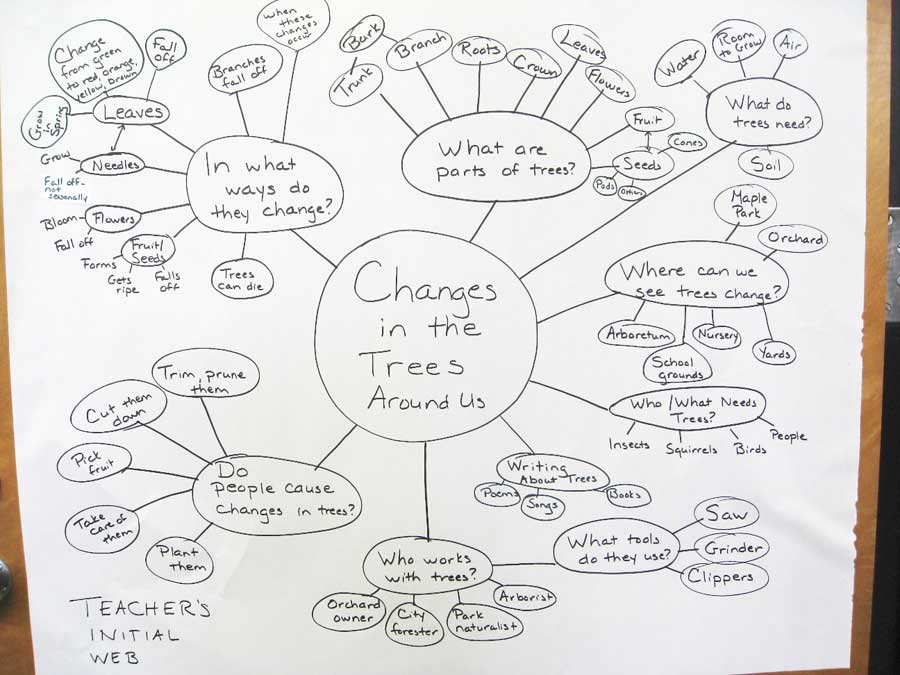 Changes
in the
Trees
Around Us
In what
ways do
they change?
Leaves
Change
from green
to red, orange,
yellow, brown
Fall
off
Grow
in
Spring
Needles
Grow
Fall off-
not
seasonally
Flowers
Bloom
Fall off
Fruit/
Seeds
Forms
Gets
ripe
Falls
off
Trees
can die
Branches
fall off
when
these
changes
occur
What are
parts of trees?
Trunk
Bark
Branch
Roots
Crown
Leaves
Flowers
Fruit
Seeds
Cones
Pods
Others
What do
trees need?
Water
Room
to Grow
Air
Soil
Where can we
see trees change?
Maple
Park
Orchard
Arboretum
School
grounds
Nursery
Yards
Who/What Needs
Trees?
Insects
Squirrels
Birds
People
Writing
About Trees
Poems
Songs
Books
Who works
with trees?
Orchard
owner
City
forester
Park
naturalist
Arborist
What tools
do they use?
Saw
Grinder
Clippers
Do
people cause
changes in trees?
Trim, prune
them
Cut them
down
Pick
fruit
Take
care of
them
Plant
them
TEACHER'S
INITIAL
WEB